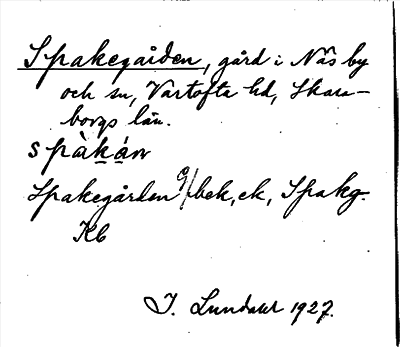 Spakegården, gård i Näs by
och sn, Vartofta hd, Skara-
borgs län.
spàkán
Spakegården G/bek, ek, Spakg.
Kb
J. Lundahl 1927.